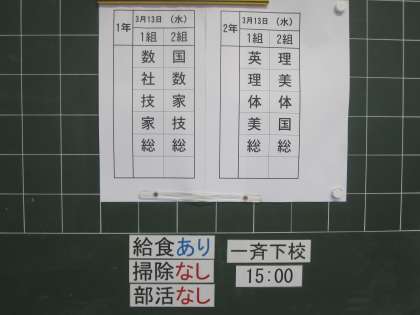 1年 3月13日（水）
1組 2組
数 国
社 数
技 家
家 技
総 総
2年 3月13日（水）
1組 2組
英 理
理 美
体 体
美 国
総 総
給食あり
掃除なし
部活なし
一斉下校
15:00